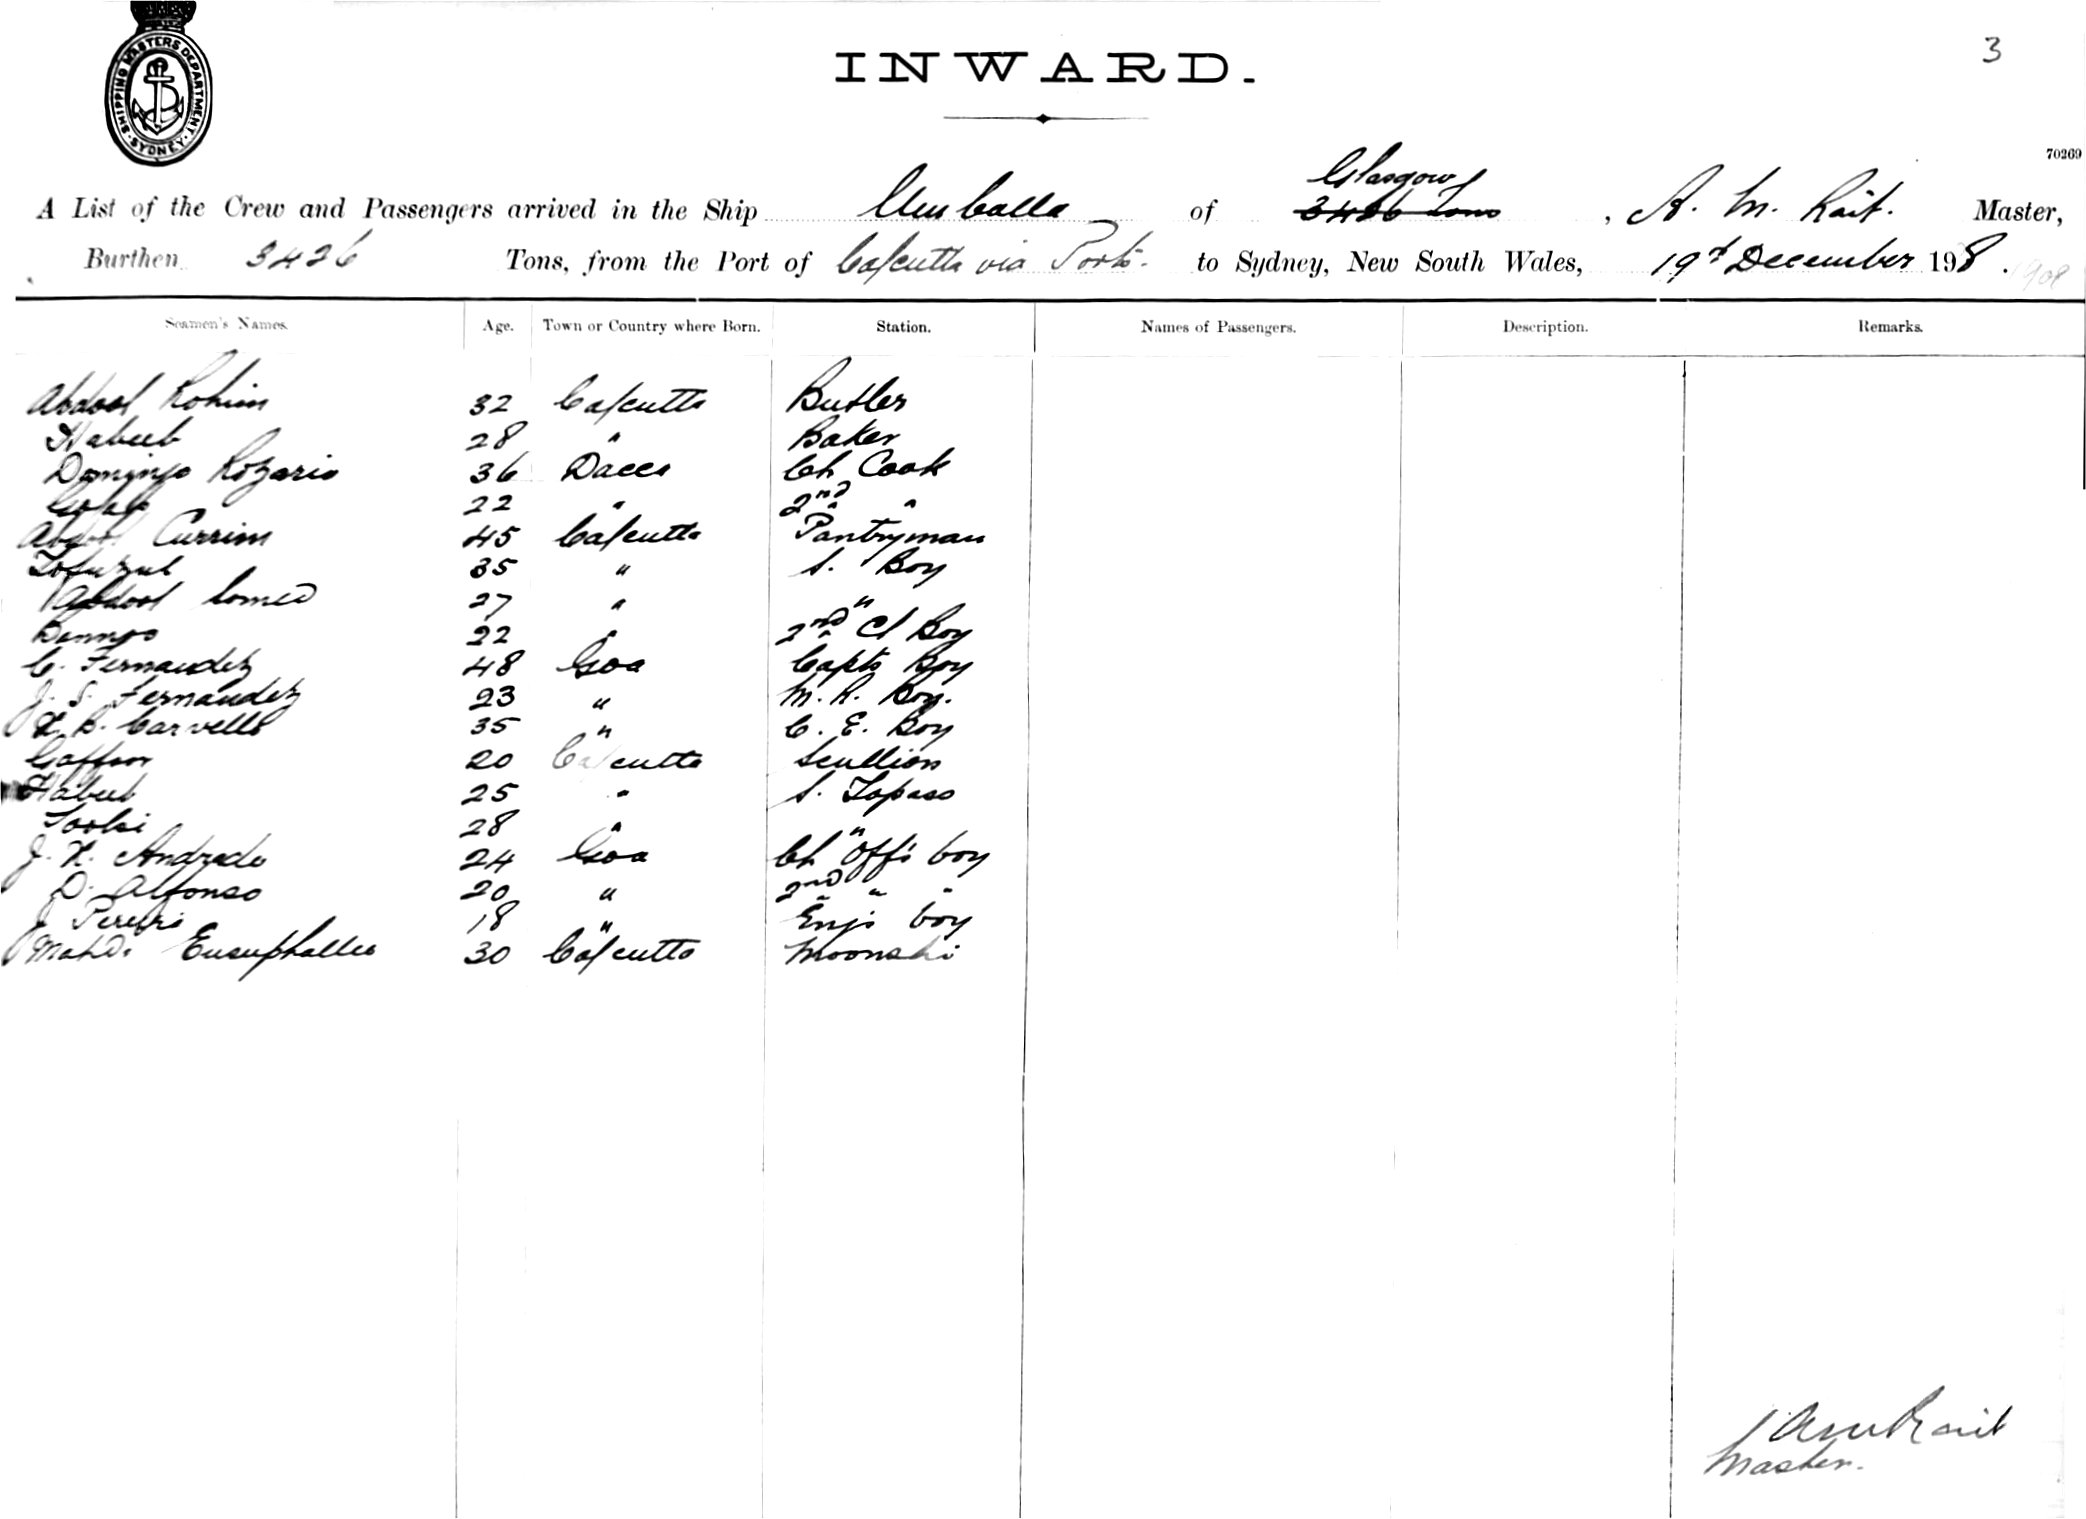 SHIPPING MASTERS DEPARTMENT
SYDNEY
3
INWARD.
70269
Glasgow
A List of the Crew and Passengers arrived in the Ship Umballa of 3426 Tons, A. M. Rait. Master,
Burthen 3426 Tons, from the Port of Calcutta via Ports. to Sydney, New South Wales, 19th December 1908. 1908
Seamen's Names. Age. Town or Country where Born. Station. Names of Passengers. Description. Remarks.
Abdool Rohim 32 Calcutta Butler
Habeeb 28 " Baker
Domingo Rozario 36 Dacca Ch Cook
22 " 2nd "
Abdool Currim 45 Calcutta Pantryman
Tofuzul 35 " S. Boy
Abdool Somed 27 " "
22 " 2nd Cl Boy
C. Fernandez 48 Goa Capts Boy
J. S. Fernandez 23 " M. R. Boy.
X. B. Carvello 35 " C. E. Boy
Gaffoor 20 Calcutta Scullion
Habeeb 25 " S. Topass
Toolsi 28 " "
J. X. Andrade 24 Goa Ch Off's boy
D. Alfonso 20 " 2nd " "
J Pereira 18 " Eng's boy
30 Calcutta Moonshi
AM Rait
Master.